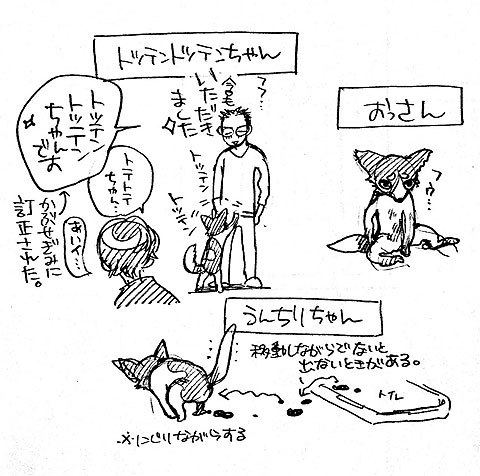 トッテンドッテンちゃん
フフ…
今日も
いただき
ました
トッテン
トッテン
ちゃんです
トテトテ
ちゃん…
あいイ…
訂正された。
トッテン
トッテン
おっさん
フゥ…
うんちりちゃん
移動しながらでないと
出ないときがある。
トイレ
※にじりながらする